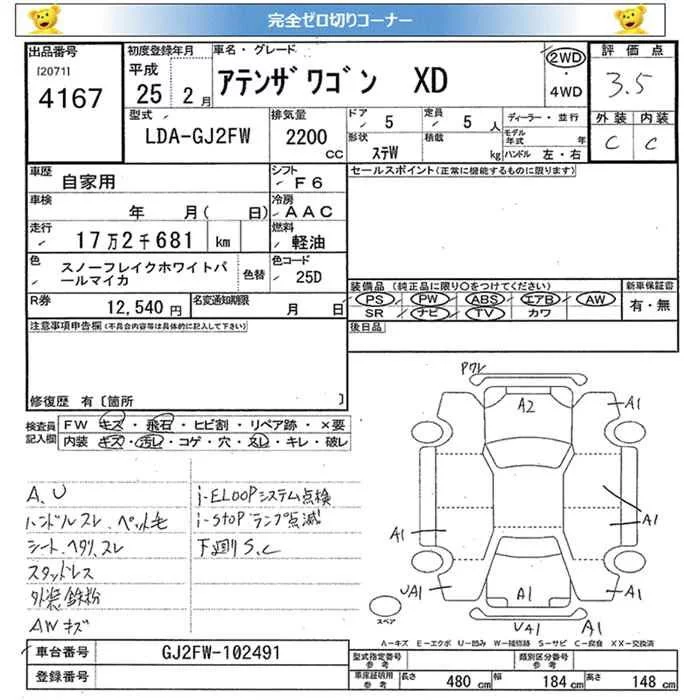 完全ゼロ切りコーナー
出品番号
[2071]
4167
初度登録年月
平成
25年 2月
車名・グレード
アテンザワゴン XD
2WD
・
4WD
評価点
3.5
外装 内装
C C
型式
LDA-GJ2FW
排気量
2200
CC
ドア
5
定員
5 人
形状
ステW
積載
kg
ディーラー・並行
モデル年式 年
ハンドル 左・右
車歴
自家用
シフト
F6
セールスポイント(正常に機能するものに限ります)
車検
年 月( 日)
冷房
AAC
走行
17万2千681 km
燃料
軽油
色
スノーフレイクホワイトパールマイカ
色替
色コード
25D
装備品 (純正品に限り○をつけてください)
PS PW ABS エアB AW
SR ナビ TV カワ
新車保証書
有・無
R券
12,540 円
名変通知期限
月 日
後日品
注意事項申告欄(不具合内容等は具体的に記入して下さい)
修復歴 有〔箇所 〕
検査員記入欄
FW キズ・飛石・ヒビ割・リペア跡・×要
内装 キズ・汚レ・コゲ・穴・スレ・キレ・破レ
A、U
ハンドルスレ、ペット毛
シート、ヘタリ、スレ
スタッドレス
外装鉄粉
AWキズ
i-ELOOPシステム点検
i-STOPランプ点滅
下廻りS、C
Pワレ
A2
A1
A1
A1
A1
UA1
A1
UA1
A1
スペア
A-キズ E-エクボ U-凹み W-補修跡 S-サビ C-腐食 XX-交換済
車台番号
GJ2FW-102491
登録番号
型式指定番号
参考
類別区分番号
参考
車庫証明用
参考
長さ 480 cm
幅 184 cm
高さ 148 cm